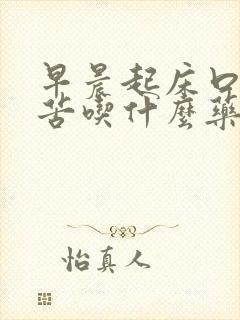 早晨起床口
苦喫什麼藥
怡真人